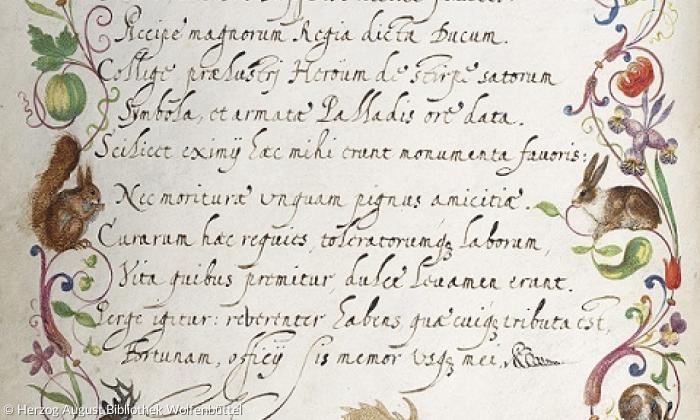 Accipe magnorum Regia dicta Ducum.
Collige prælustrj Heröum de stirpe satorum
Symbola, et armatæ Palladis ore data.
Scilicet eximij hæc mihi erunt monumenta favoris:
Nec morituræ vnquam pignus amicitiæ.
Curarum hæc requies, toleratorumqꝫ laborum,
Vita quibus premitur, dulce levamen erunt.
Perge igitur: reverenter habens, quæ cuiqꝫ tributa est,
Fortunam, officij sis memor vsqꝫ mei,
© Herzog August Bibliothek Wolfenbüttel